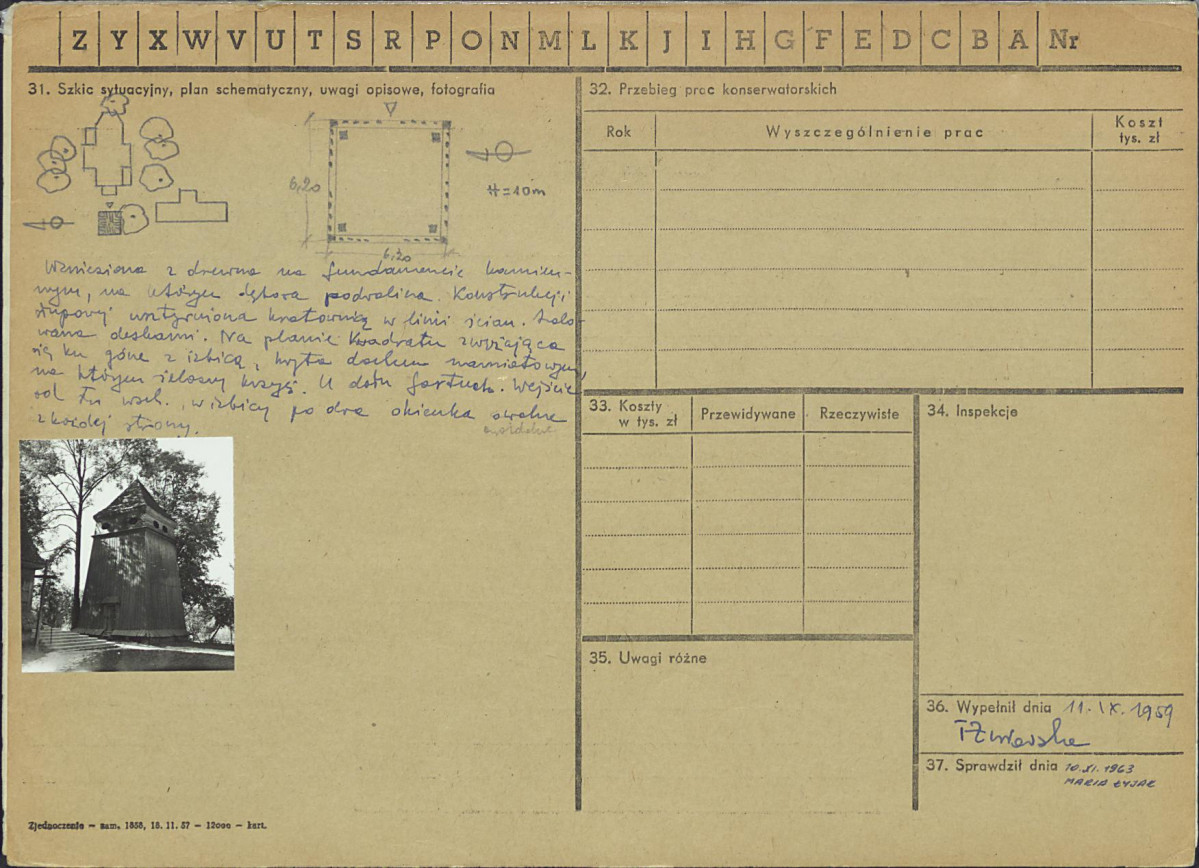 Z Y X W V U T S R P O N M L K J I H G F E D C B A Nr
31. Szkic sytuacyjny, plan schematyczny, uwagi opisowe, fotografia
6,20
H=10m
6,20
Wzniesiona z drewna na fundamencie kamien-
nym, na którym dębowa podwalina. Konstrukcji
słupowej usztywniona kratownicą w linii ścian. Szalo-
wana deskami. Na planie kwadratu zwężająca
się ku górze z izbicą, kryta dachem namiotowym,
na którym żelazny krzyż. U dołu fartuch. Wejście
od wsch. w izbicy po dwa okienka owalne
z każdej strony.
32. Przebieg prac konserwatorskich
Rok
Wyszczególnienie prac
Koszt
tys. zł
33. Koszty
w tys. zł
Przewidywane
Rzeczywiste
34. Inspekcje
35. Uwagi różne
36. Wypełnił dnia 11.IX.1959
37. Sprawdził dnia 10.XI.1963
MARIA ŁYJAK
Zjednoczenie — zam. 1858, 18. 11. 57 — 12000 — kart.